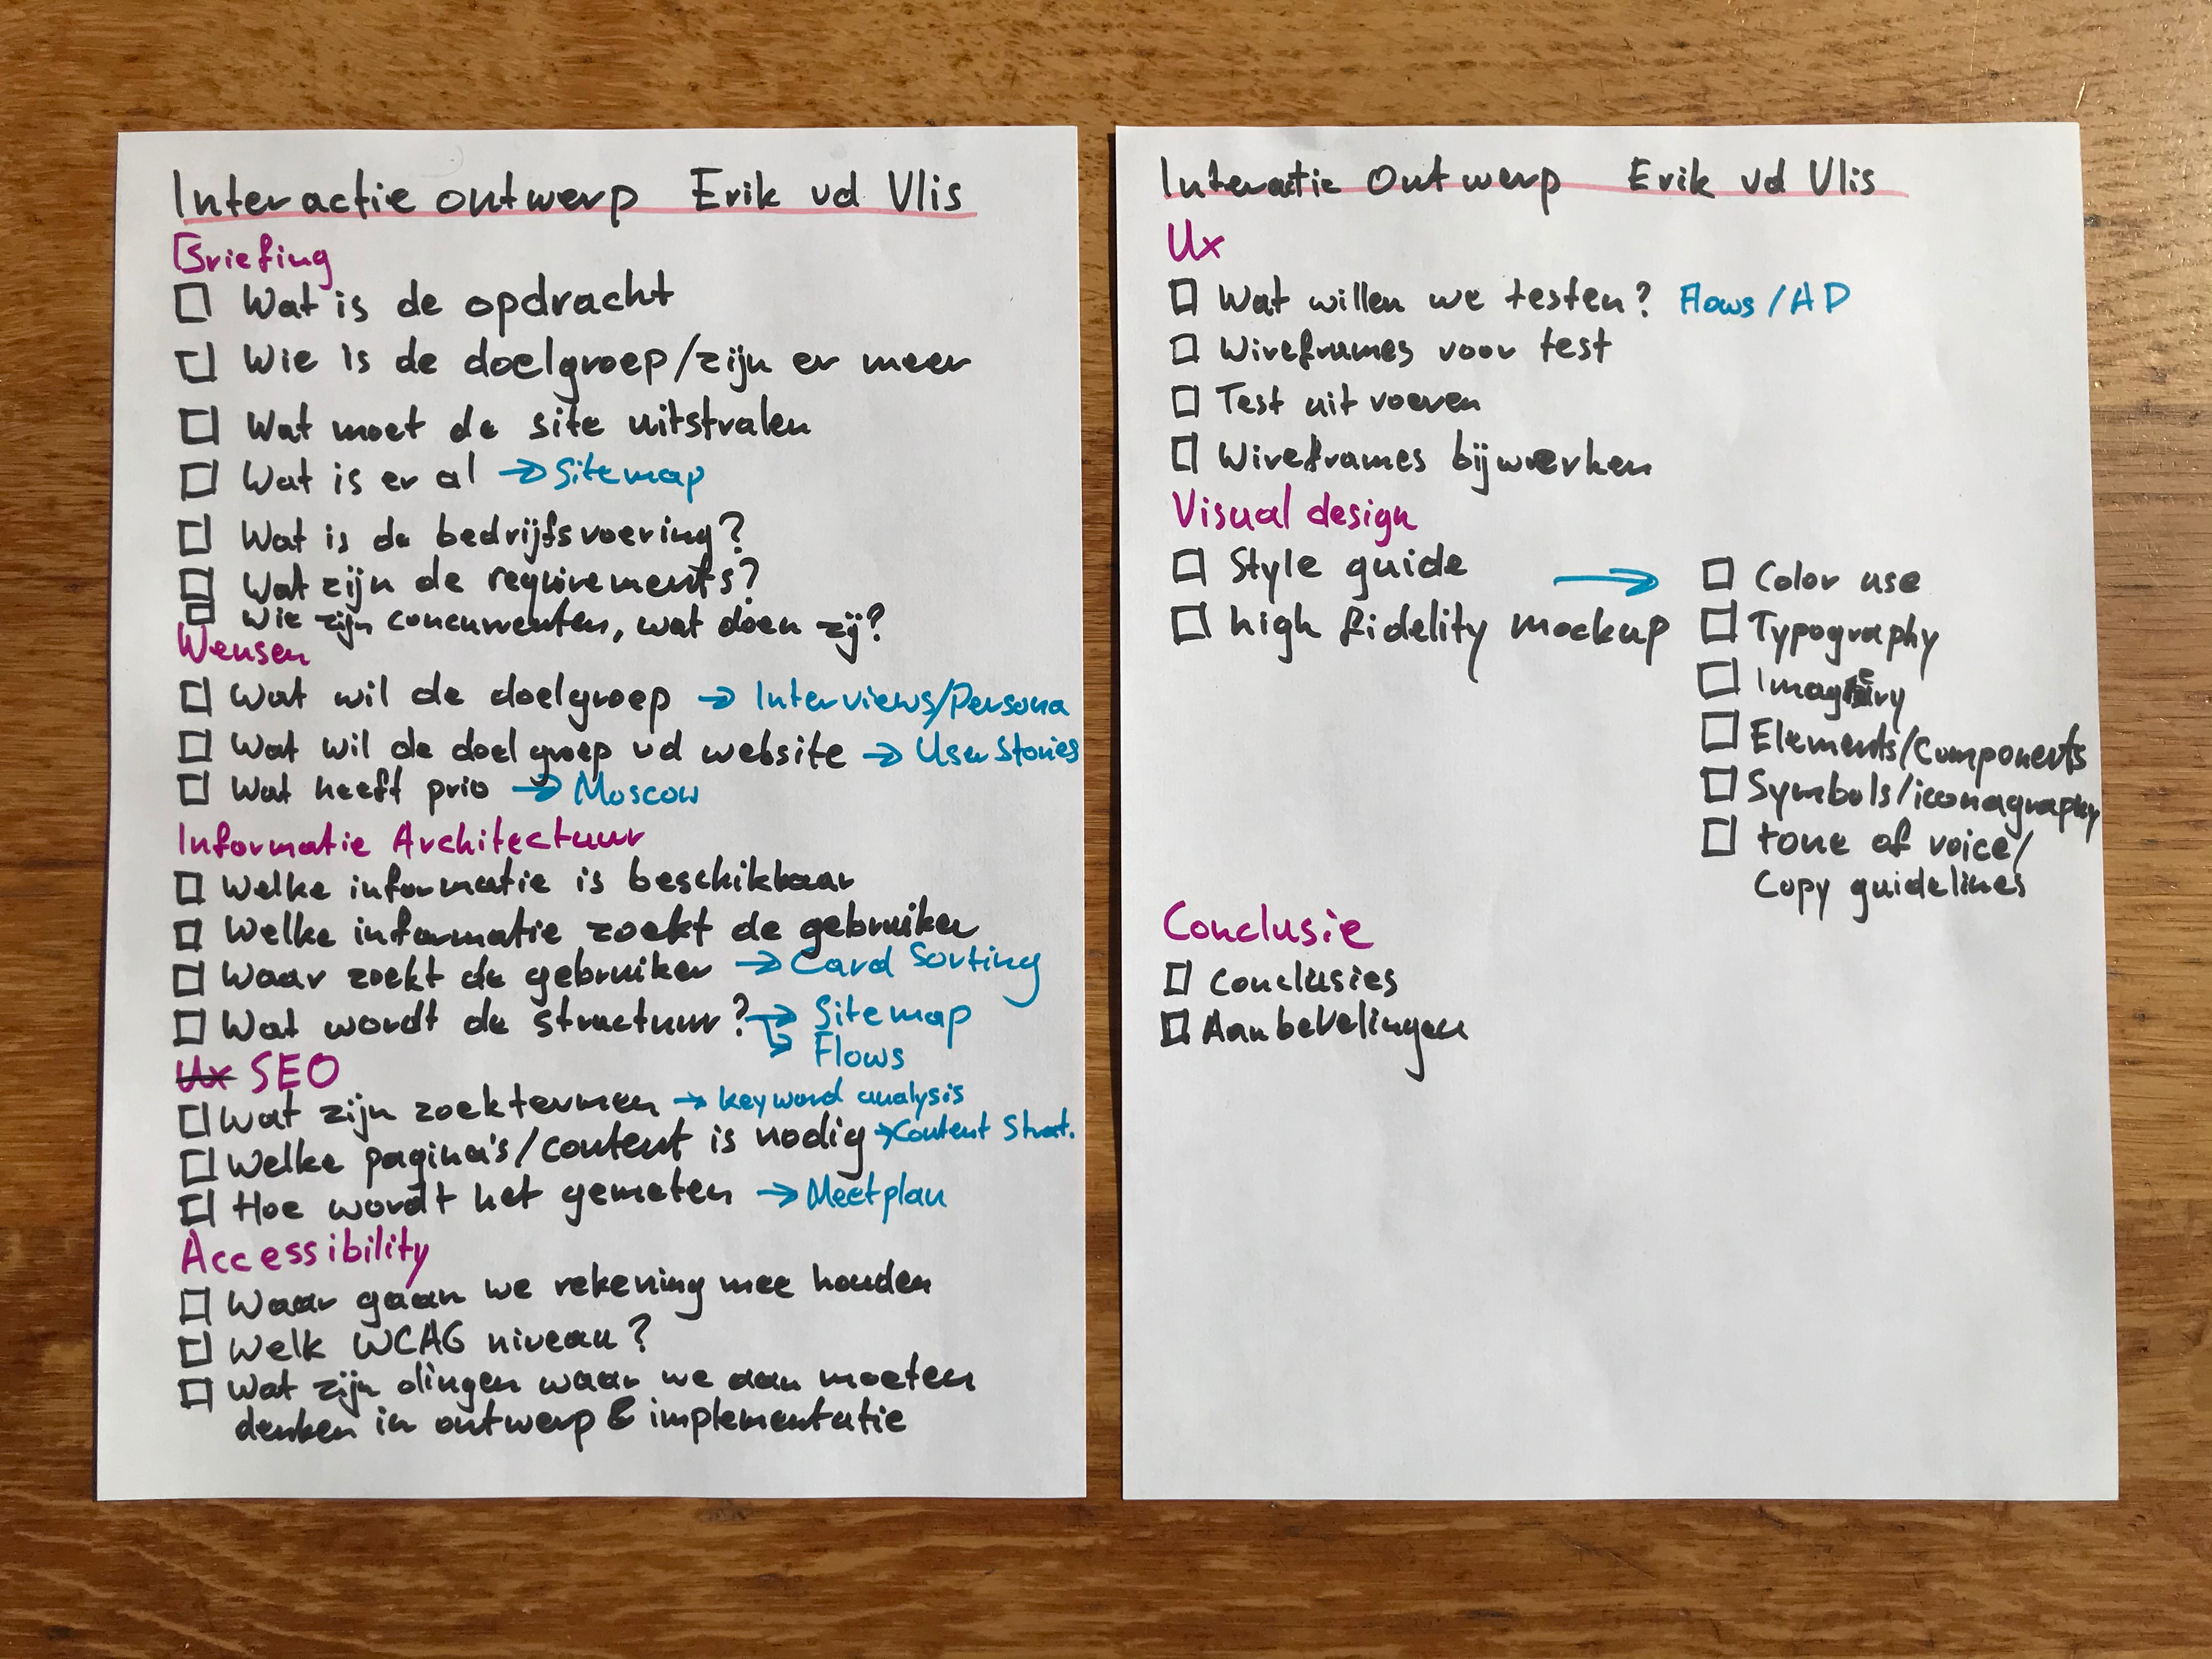 Interactie ontwerp Erik vd Vlis
Briefing
Wat is de opdracht
Wie is de doelgroep/zijn er meer
Wat moet de site uitstralen
Wat is er al → Sitemap
Wat is de bedrijfsvoering?
Wat zijn de requirements?
Wie zijn concurrenten, wat doen zij?
Wensen
Wat wil de doelgroep → Interviews/Persona
Wat wil de doelgroep vd website → User Stories
Wat heeft prio → Moscow
Informatie Architectuur
Welke informatie is beschikbaar
Welke informatie zoekt de gebruiker
Waar zoekt de gebruiker → Card Sorting
Wat wordt de structuur? → Sitemap
→ Flows
Ux SEO
Wat zijn zoektermen → keyword analysis
Welke pagina's/content is nodig → Content Strat.
Hoe wordt het gemeten → Meetplan
Accessibility
Waar gaan we rekening mee houden
Welk WCAG niveau?
Wat zijn dingen waar we aan moeten
denken in ontwerp & implementatie
Interactie Ontwerp Erik vd Vlis
Ux
Wat willen we testen? Flows/AD
Wireframes voor test
Test uit voeren
Wireframes bijwerken
Visual design
Style guide →
high fidelity mockup
Color use
Typography
Imagery
Elements/Components
Symbols/iconagraphy
tone of voice/
Copy guidelines
Conclusie
Conclusies
Aanbevelingen